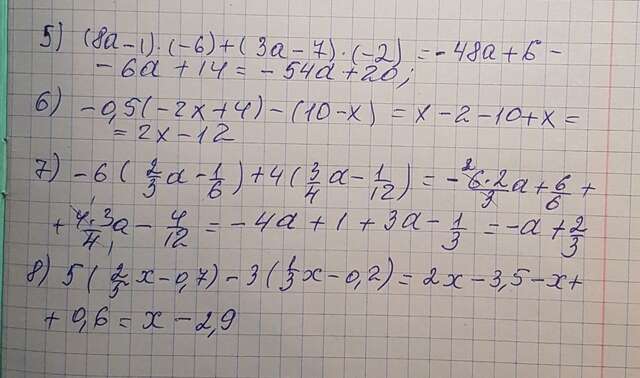 5) (8a-1)·(-6)+(3a-7)·(-2)=-48a+6-
-6a+14=-54a+20;
6) -0,5(-2x+4)-(10-x)=x-2-10+x=
=2x-12
7) -6(2/3a-1/6)+4(3/4a-1/12)=-6·2/3a+6/6+
+4·3/4a-4/12=-4a+1+3a-1/3=-a+2/3
8) 5(2/5x-0,7)-3(1/3x-0,2)=2x-3,5-x+
+0,6=x-2,9